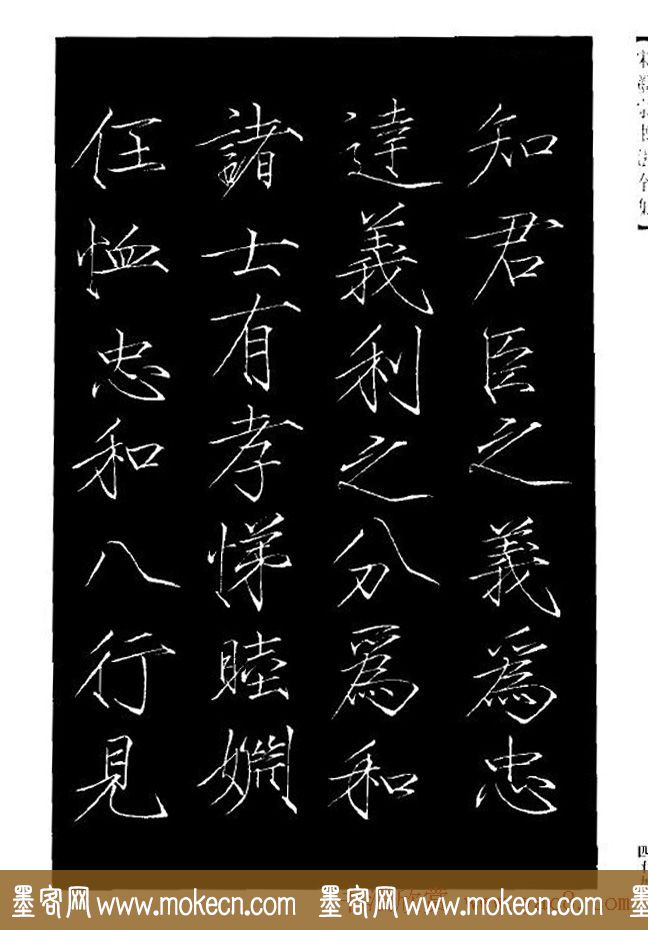 知君臣之義爲忠
達義利之分爲和
諸士有孝悌睦婣
任恤忠和八行見
墨客网 www.mokecn.com 墨客网 www.mokecn.com